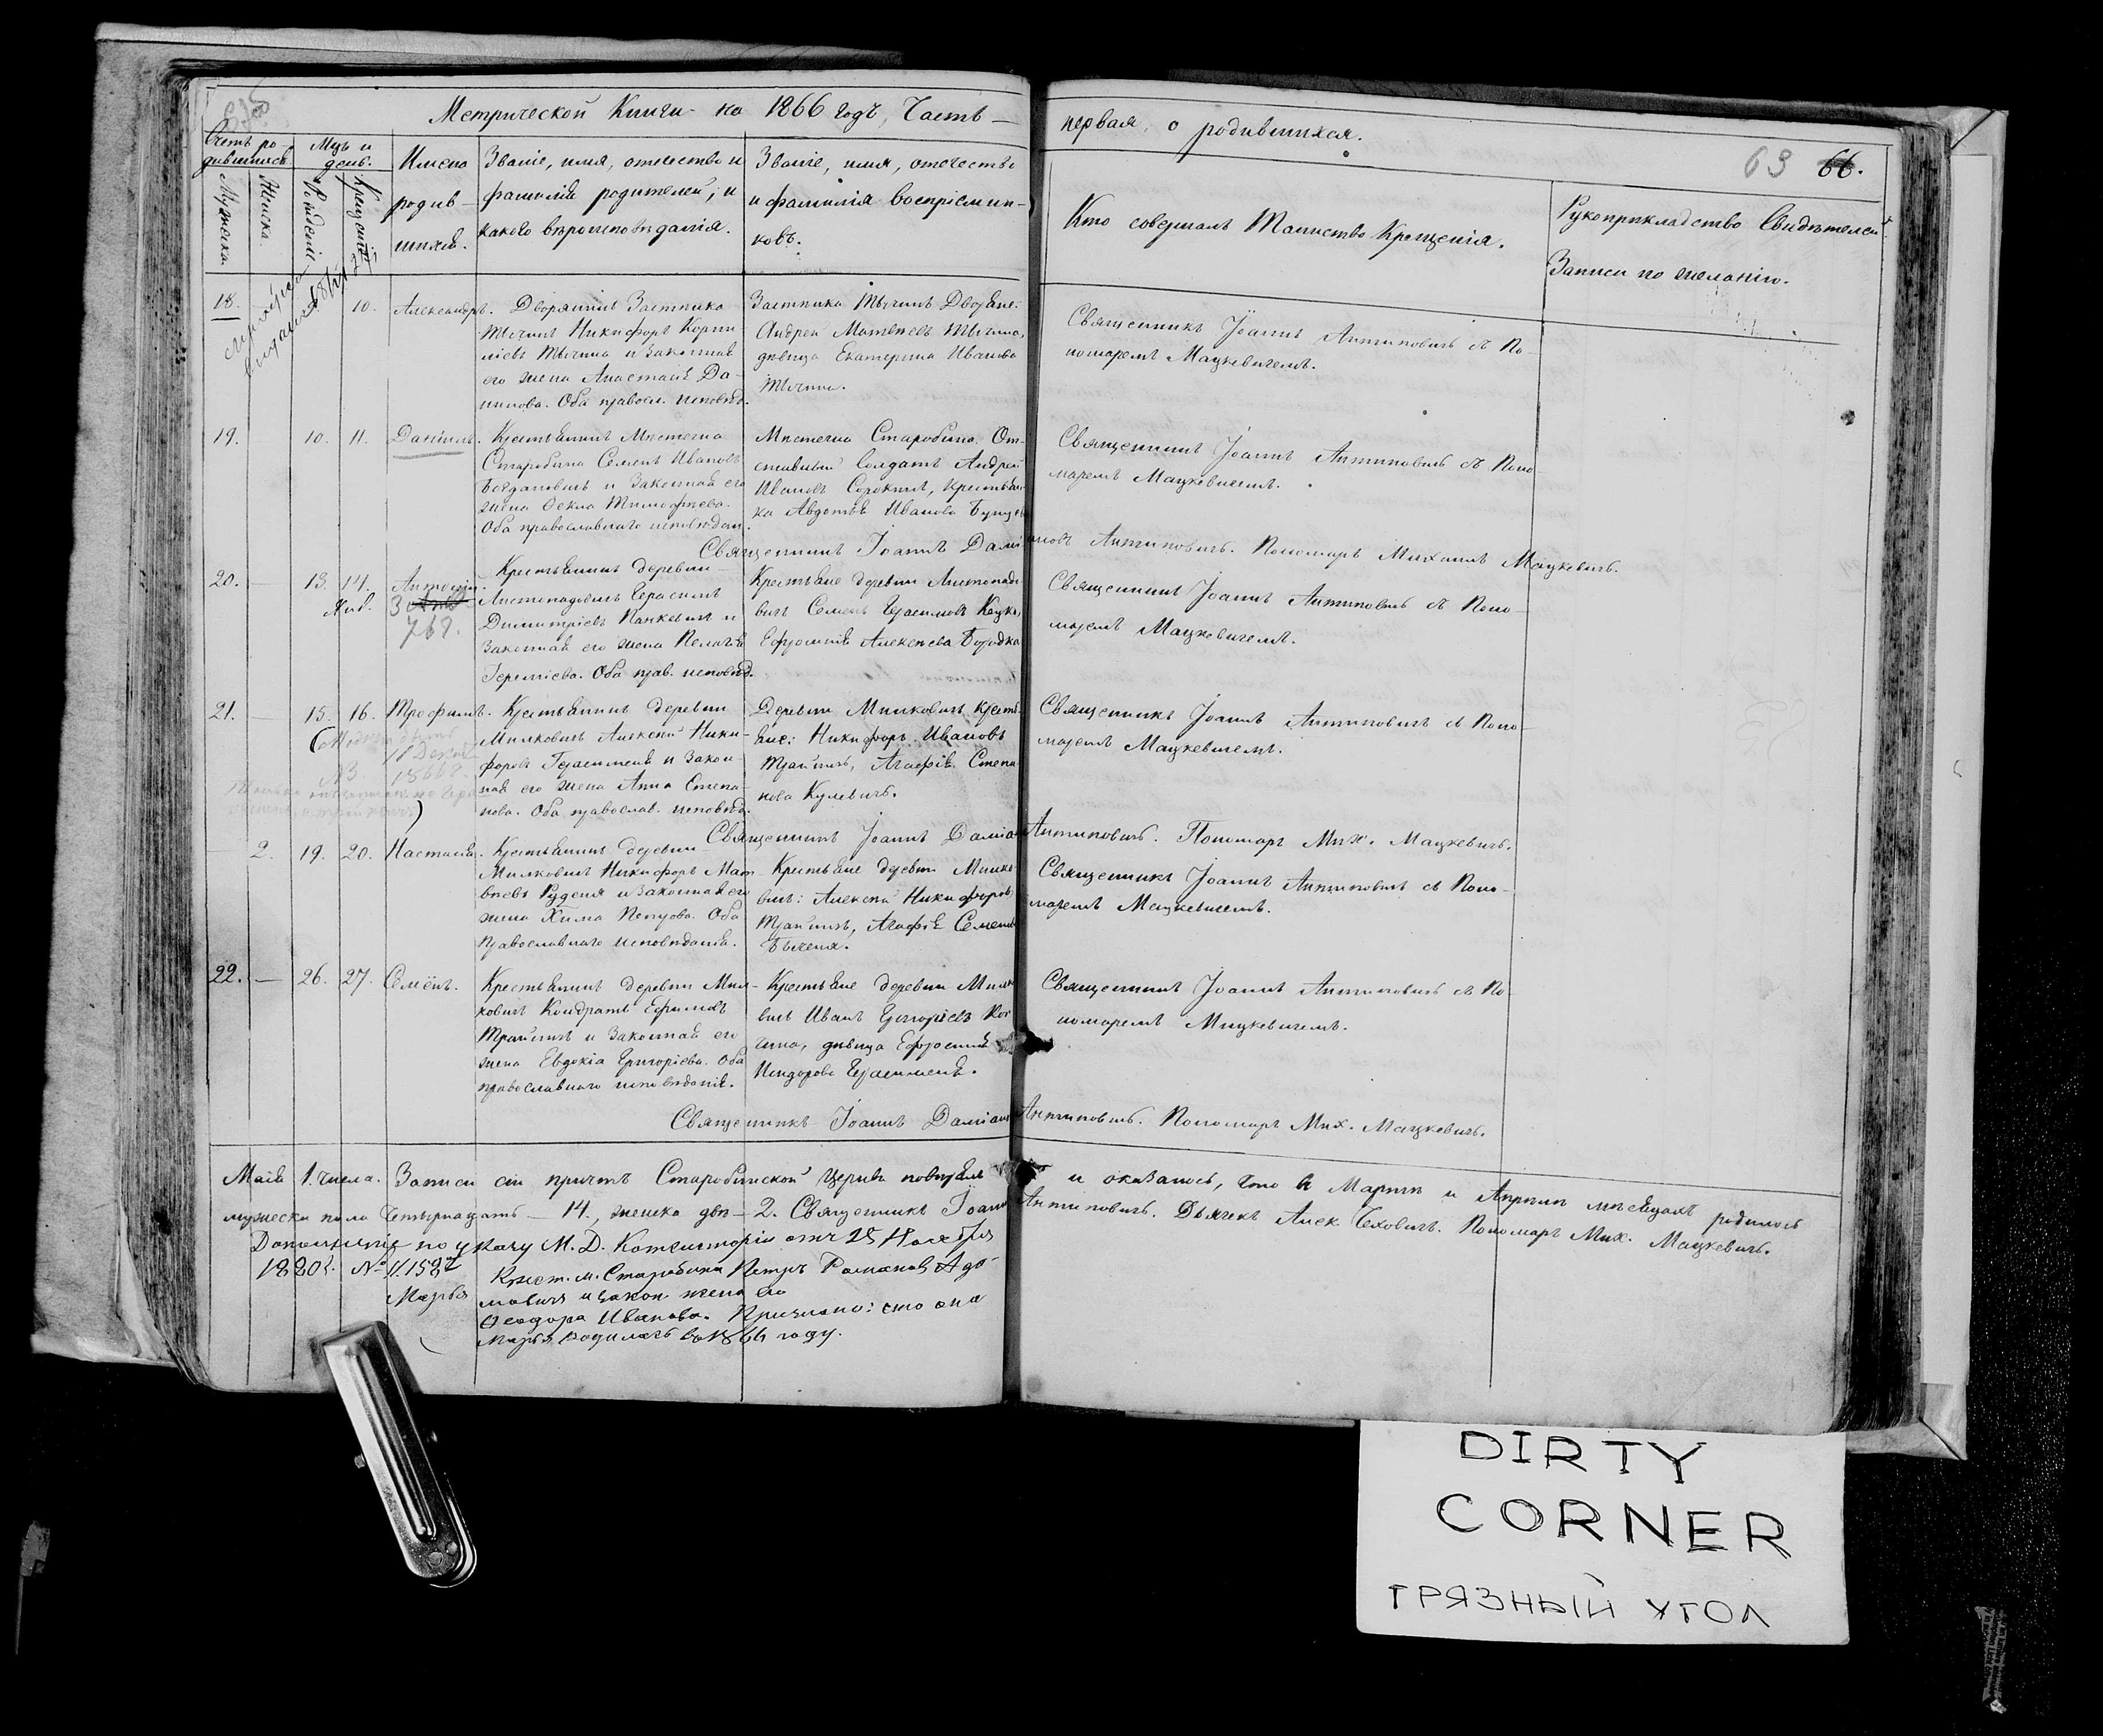 Метрической Книги на 1866 годъ, Часть —
первая, о родившихся.
63 66.
Счетъ ро-
дившихся
Мужеска.
Женска.
Мцъ и
день.
Рожденія
Крещенія
Имена
родив-
шихся.
Званіе, имя, отчество и
фамилія родителей, и
какого вѣроисповѣданія.
Званіе, имя, отечество
и фамилія воспріемни-
ковъ.
Кто совершалъ Таинство Крещенія.
Рукоприкладство Свидѣтелей
Записи по желанію.
18. 10. Александръ.
Дворянинъ Застѣнка
Тычинъ Никифоръ Корни-
ліевъ Тычина и законная
его жена Анастасія Да-
нилова. Оба правосл. исповѣд.
Застѣнка Тычинъ Дворяне:
Андрей Матвѣевъ Тычина,
дѣвица Екатерина Иванова
Тычина.
Священникъ Іоаннъ Антиповичъ съ По-
номаремъ Мацкевичемъ.
19. 10. 11. Даніилъ.
Крестьянинъ Мѣстечка
Старобина Семенъ Ивановъ
Богдановичъ и законная его
жена Ѳекла Тимофѣева.
Оба православнаго исповѣдан.
Мѣстечка Старобина От-
ставный Солдатъ Андрей
Ивановъ Сорокинъ, крестьян-
ка Авдотья Иванова
Священникъ Іоаннъ Антиповичъ съ Поно-
маремъ Мацкевичемъ.
Священникъ Іоаннъ Даміановъ Антиповичъ. Пономарь Михаилъ Мацкевичъ.
20. — 13. 14. Антоній.
768.
Крестьянинъ деревни
Листопадовичъ Герасимъ
Димитріевъ Панкевичъ и
законная его жена Пелагія
Іереміева. Оба прав. исповѣд.
Крестьяне деревни Листопадо-
вичъ Семенъ Герасимовъ
Ефросинія Алексѣева
Священникъ Іоаннъ Антиповичъ съ Поно-
маремъ Мацкевичемъ.
21. — 15. 16. Трофимъ.
Крестьянинъ деревни
Милковичъ Алексѣй Ники-
форовъ Герасименя и закон-
ная его жена Анна Степа-
нова. Оба православ. исповѣд.
Деревни Милковичъ крестья-
не: Никифоръ Ивановъ
Трайничъ, Агафія Степа-
нова Кулевичъ.
Священникъ Іоаннъ Антиповичъ съ Поно-
маремъ Мацкевичемъ.
Священникъ Іоаннъ Даміан. Антиповичъ. Пономарь Мих. Мацкевичъ.
2. 19. 20. Настасія.
Крестьянинъ деревни
Милковичъ Никифоръ Мат-
вѣевъ Руденя и законная его
жена Хима Петрова. Оба
православнаго исповѣданія.
Крестьяне деревни Милко-
вичъ: Алексѣй Никифоровъ
Трайничъ, Агафія Семенова
Священникъ Іоаннъ Антиповичъ съ Поно-
маремъ Мацкевичемъ.
22. — 26. 27. Семёнъ.
Крестьянинъ деревни Мил-
ковичъ Кондратъ Ефимовъ
Трайничъ и законная его
жена Евдокія Григорієва. Оба
православнаго исповѣданія.
Крестьяне деревни Милко-
вичъ Иванъ Григорьевъ
дѣвица Ефросинія
Исидорова Герасименя.
Священникъ Іоаннъ Антиповичъ съ По-
номаремъ Мацкевичемъ.
Священникъ Іоаннъ Даміан. Антиповичъ. Пономарь Мих. Мацкевичъ.
Маія 1. числа. Записи сіи причтъ Старобинской Церкви повѣрялъ и оказалось, что въ Мартѣ и Апрѣлѣ мѣсяцахъ родилось
мужеска пола четырнадцать — 14., женска двѣ — 2. Священникъ Іоаннъ Антиповичъ. Дьячекъ Алек. Чеховичъ. Пономарь Мих. Мацкевичъ.
Дополненіе по указу М. Д. Консисторіи отъ 25 Ноября
1880 г. № 11.158
Марья
Крест. м. Старобина Петръ Романовъ Ада-
мовичъ и закон. жена его
Ѳеодора Иванова. Признано: что она
Марья родилась въ 1866 году.
DIRTY
CORNER
ГРЯЗНЫЙ УГОЛ